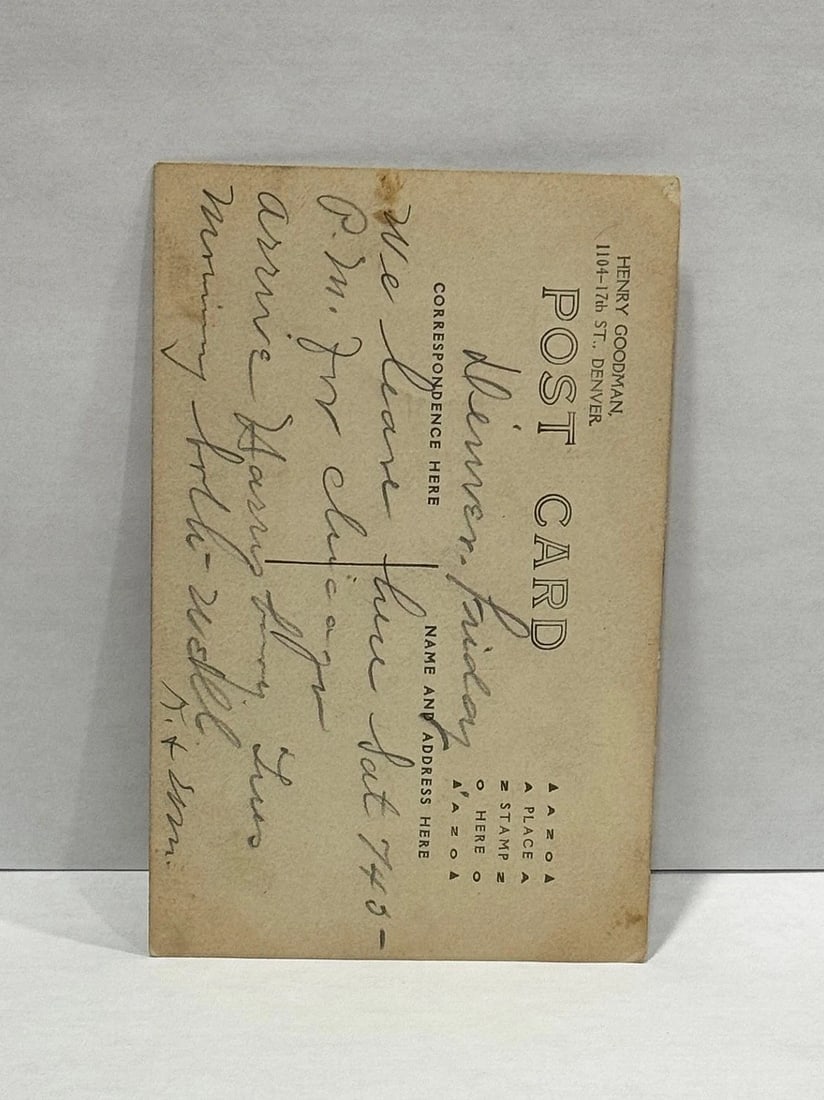 HENRY GOODMAN,
1104-17th ST., DENVER.
POST CARD
▲ A Z O ▲
A PLACE A
Z STAMP Z
O HERE O
▲ A Z O ▲
CORRESPONDENCE HERE
NAME AND ADDRESS HERE
Denver. Friday
We leave here Sat 745-
P.M. for chicago
arrive Harrisburg Tues
Morning both- well